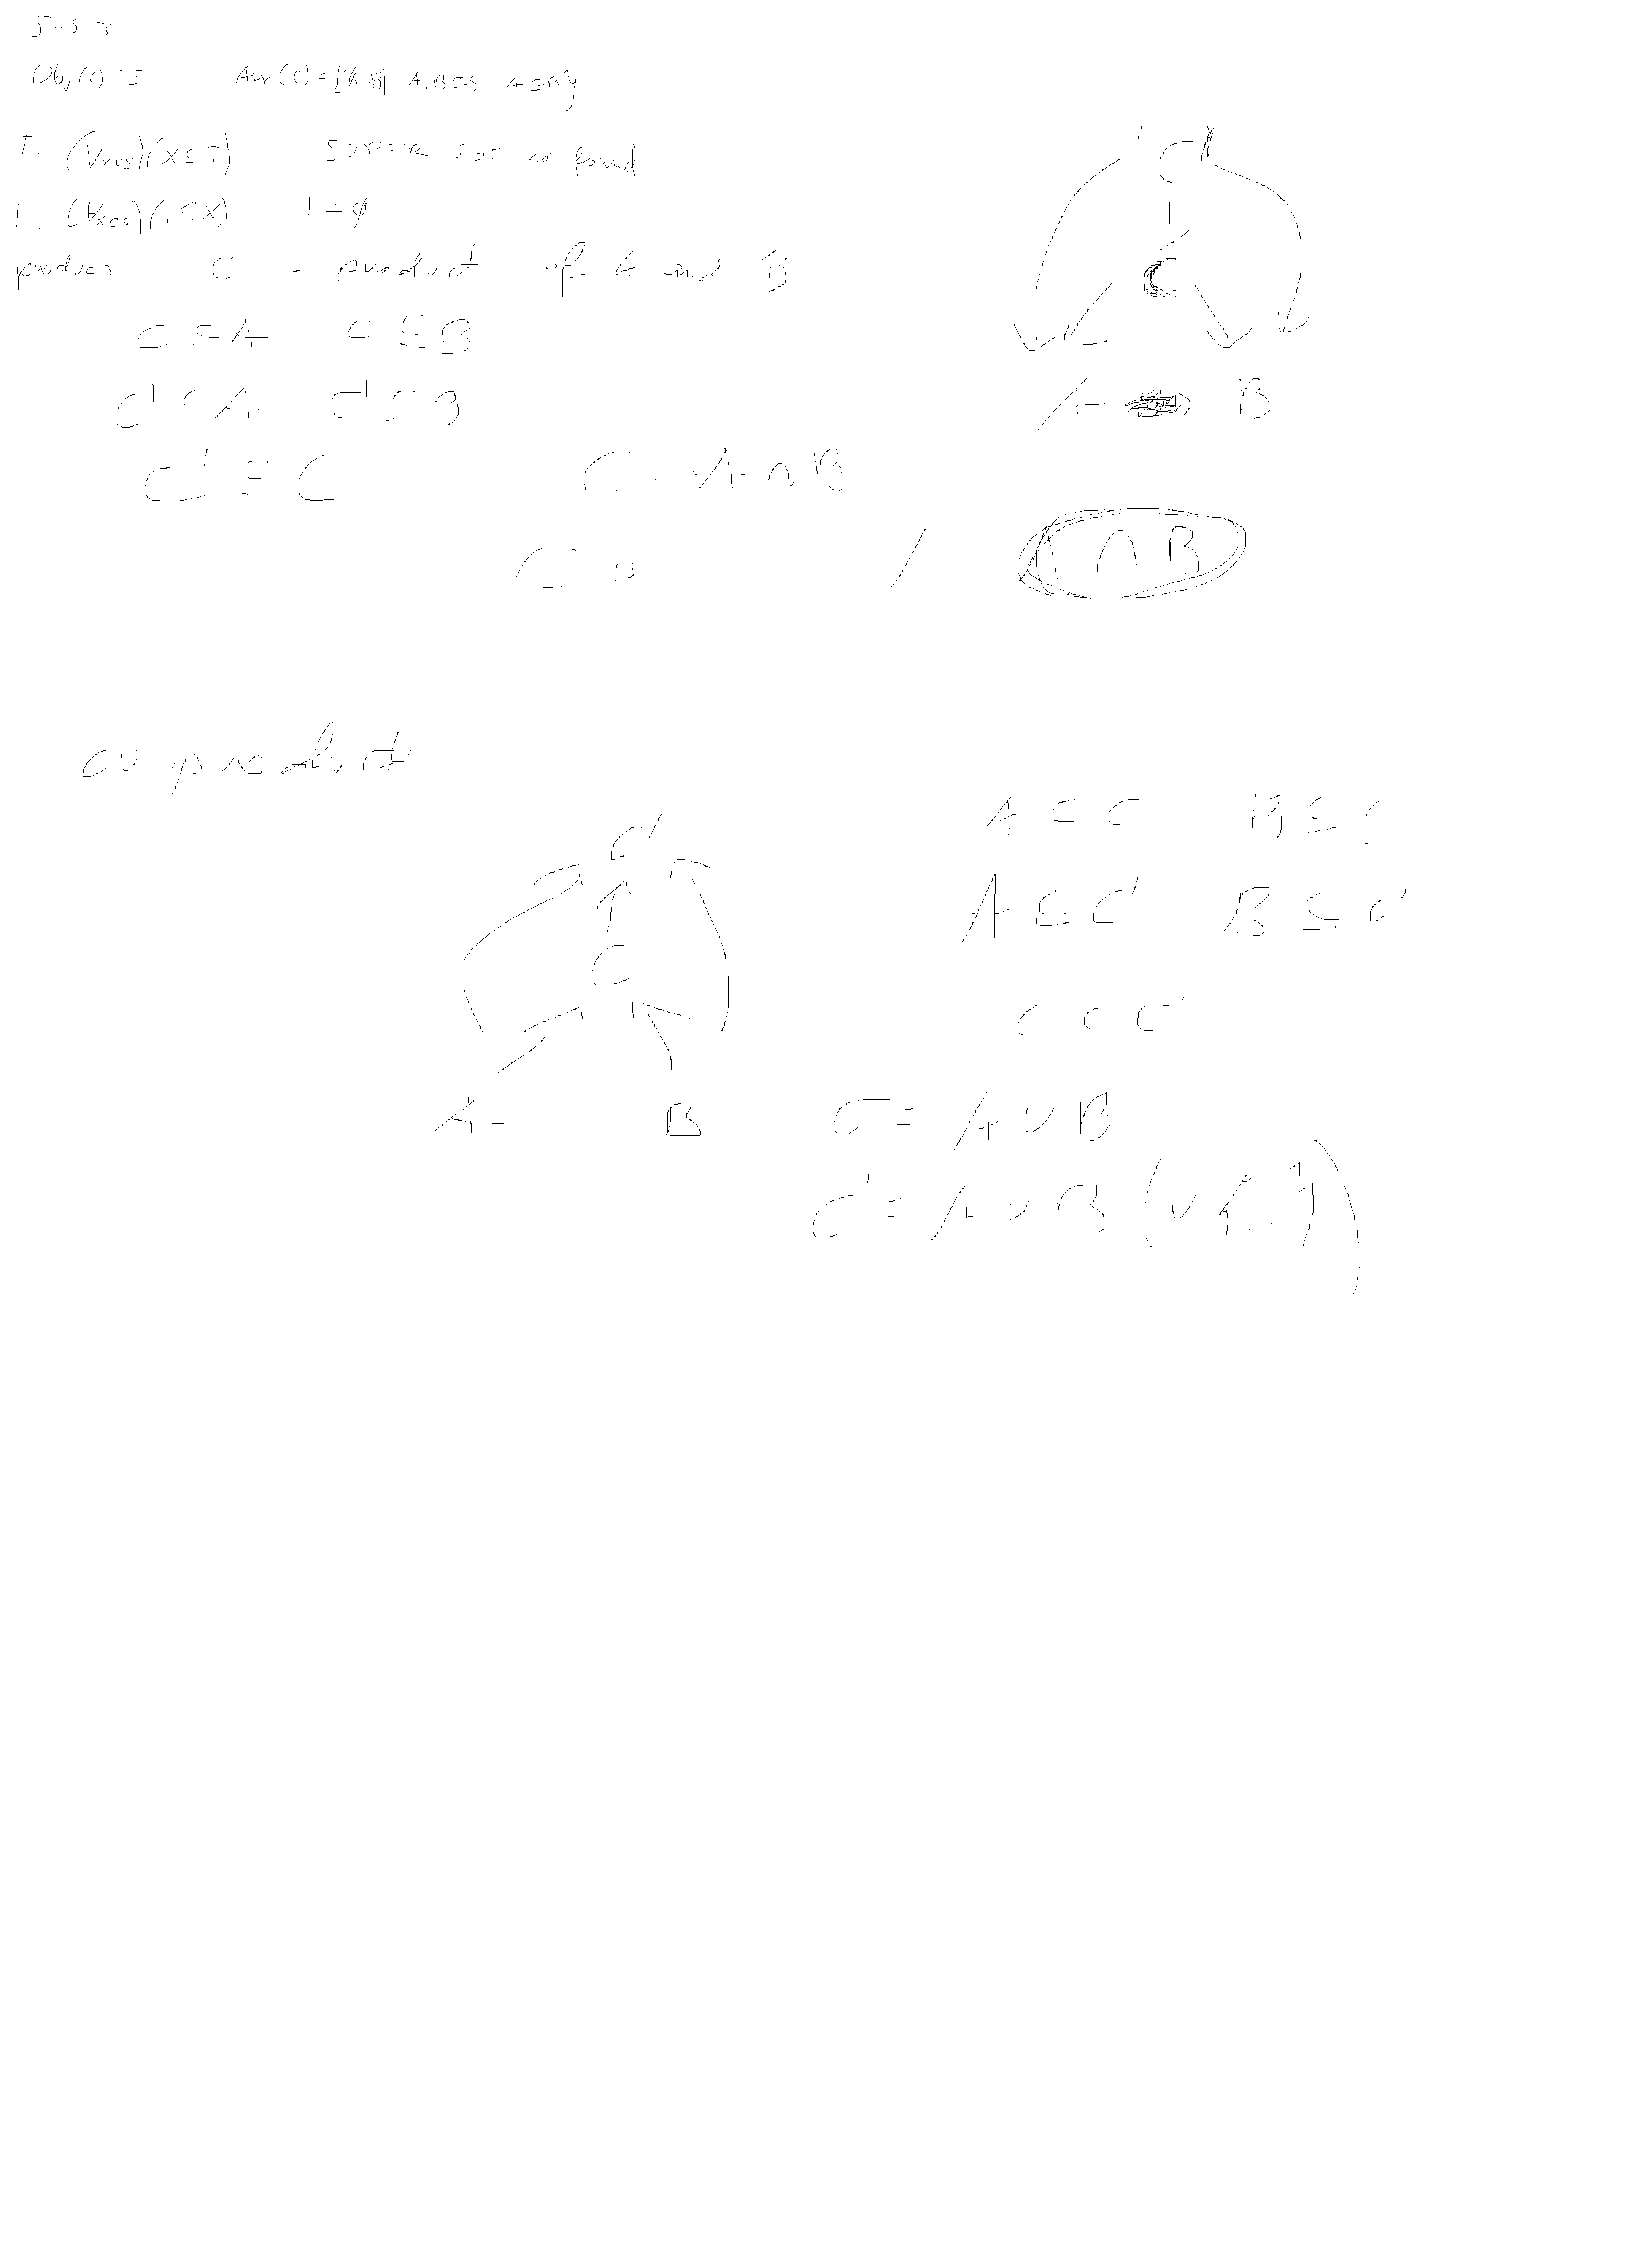 S - SETS
Obj(C) = S    Arr(C) = {(A,B) : A,B∈S, A⊆B}
T: (∀x∈S)(X⊆T)    SUPER SET not found
I: (∀x∈S)(I⊆X)    I = ∅
products : C - product of A and B
C ⊆ A    C ⊆ B
C' ⊆ A    C' ⊆ B
C' ⊆ C    C = A ∩ B
C is    /    A ∩ B
'C
C
A    B
coproducts
C'
C
A    B
A ⊆ C    B ⊆ C
A ⊆ C'    B ⊆ C'
C ⊆ C'
C = A ∪ B
C' = A ∪ B (∪ {...})